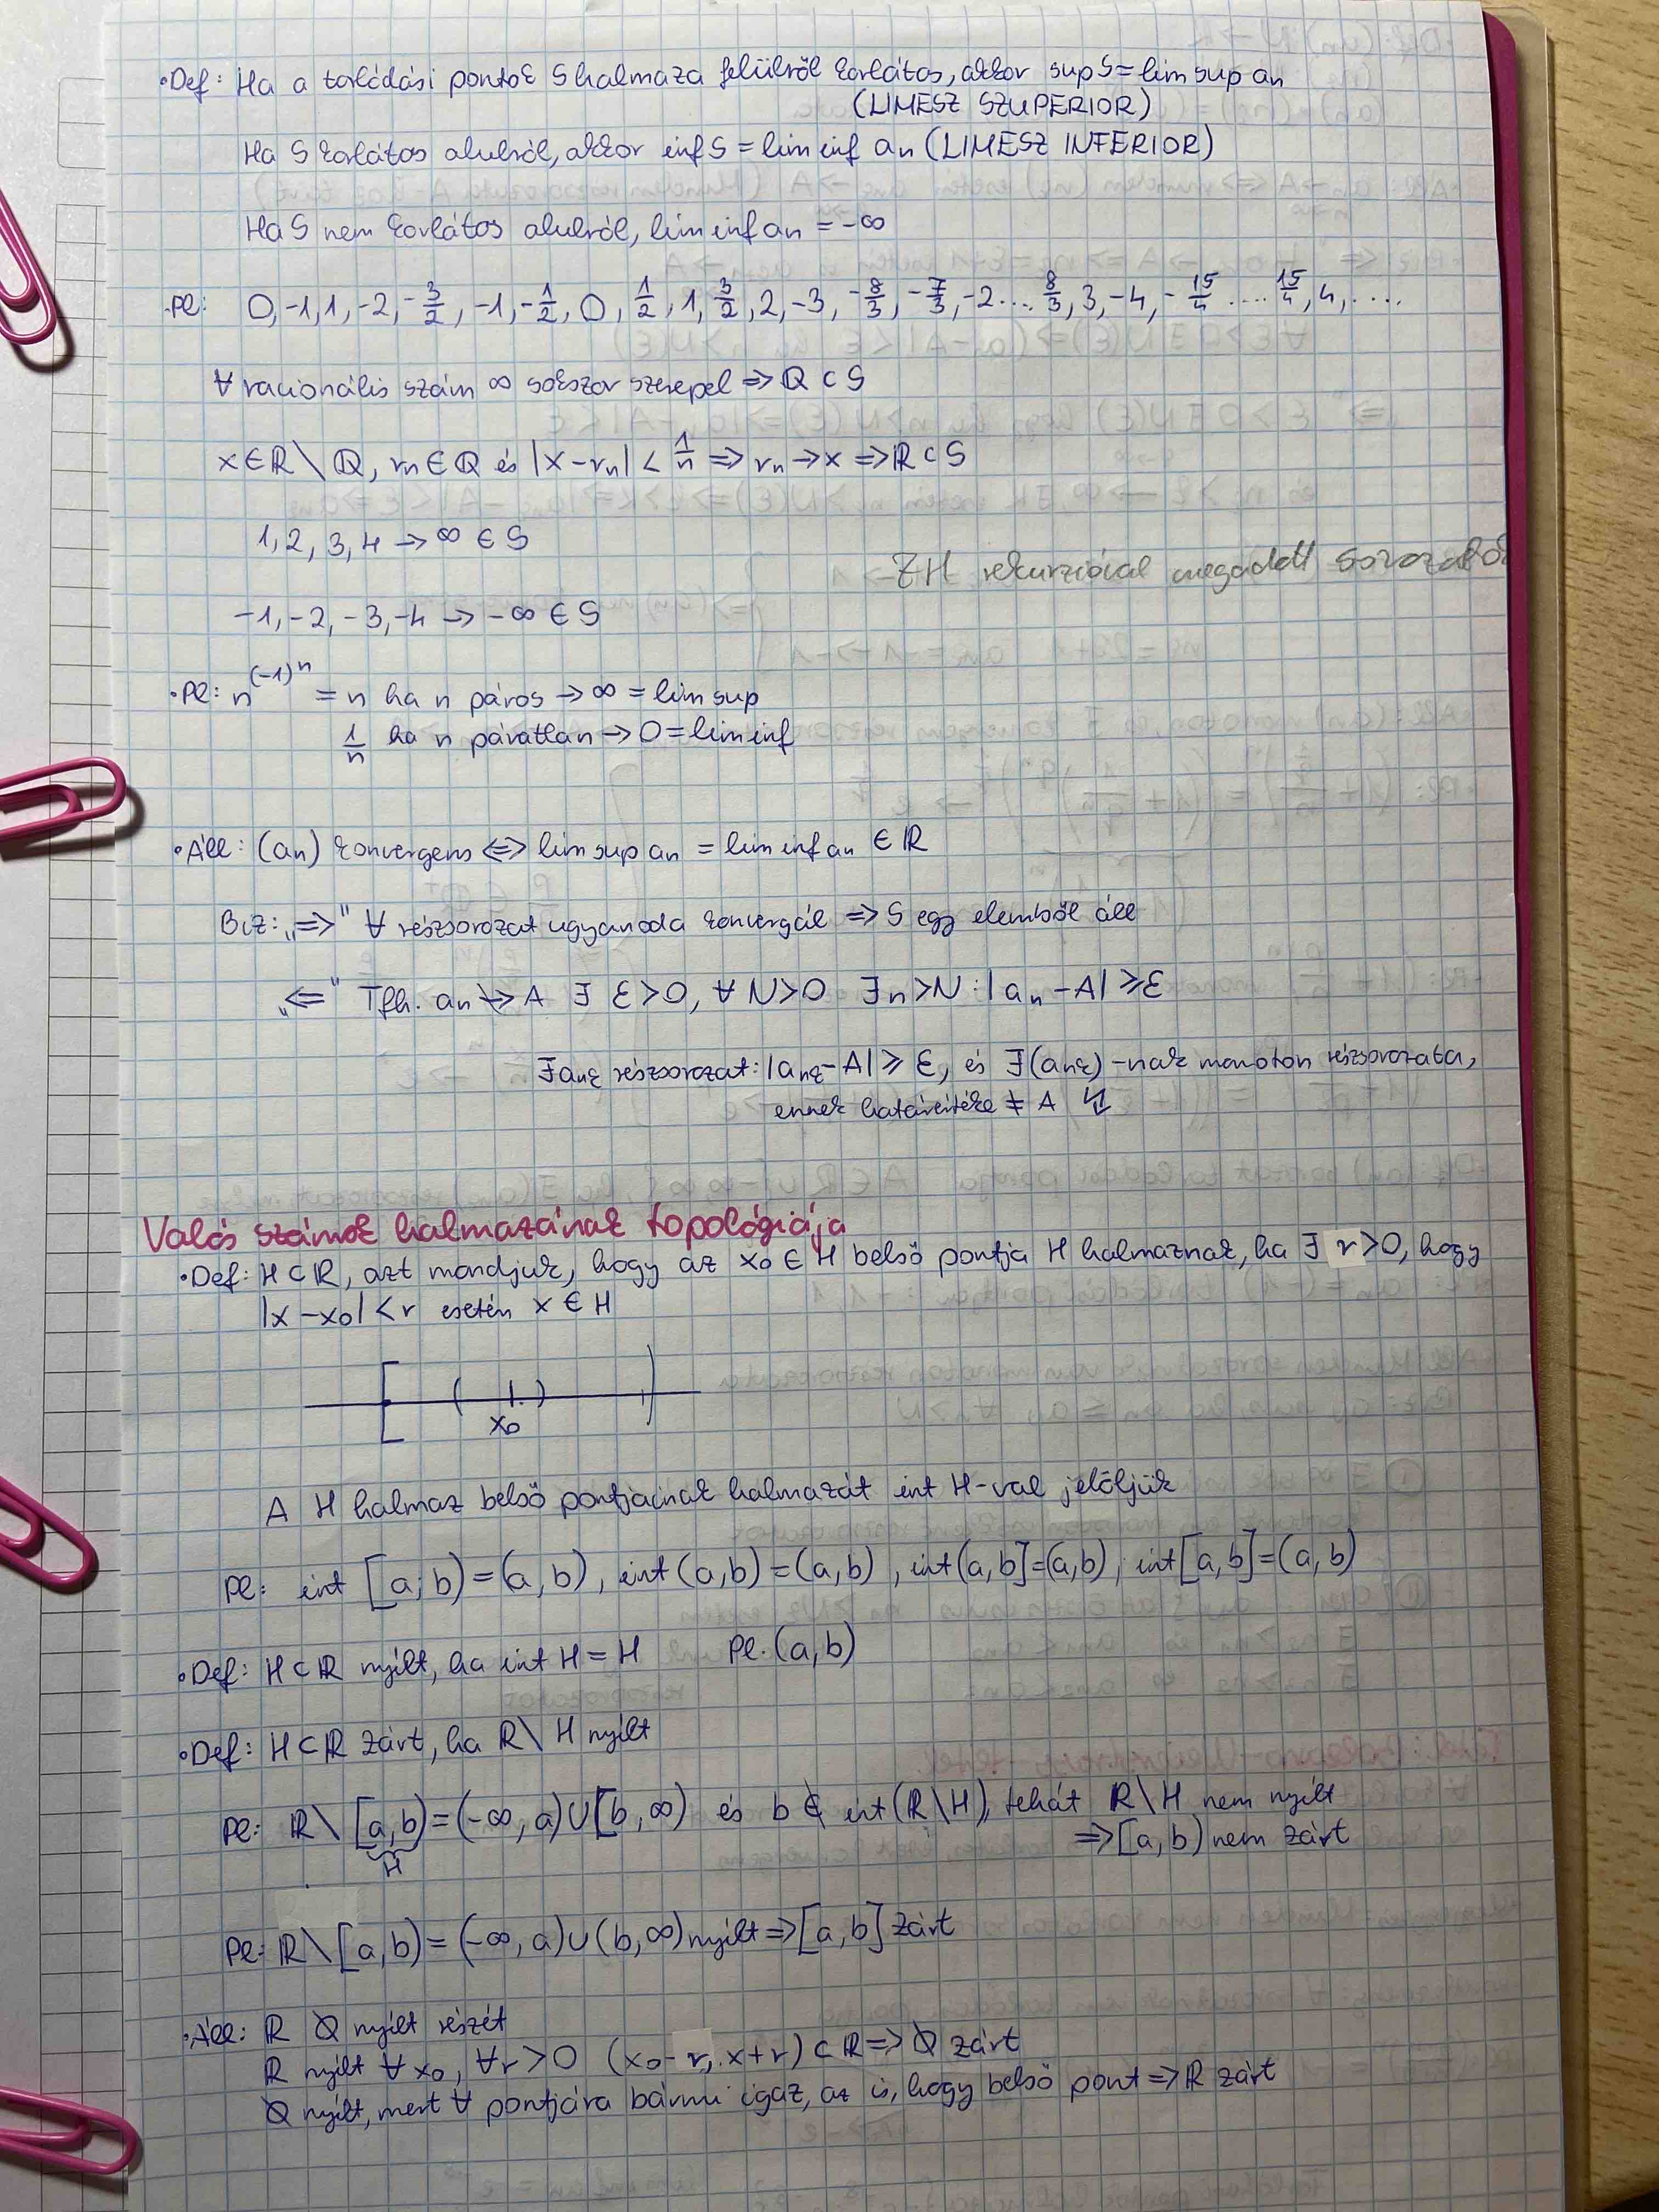 •Def: Ha a torlódási pontok S halmaza felülről korlátos, akkor sup S = lim sup an
(LIMESZ SZUPERIOR)
Ha S korlátos alulról, akkor inf S = lim inf an (LIMESZ INFERIOR)
Ha S nem korlátos alulról, lim inf an = -∞
•Pl: 0, -1, 1, -2, -3/2, -1, -1/2, 0, 1/2, 1, 3/2, 2, -3, -8/3, -7/3, -2... 8/3, 3, -4, -15/4 .... 15/4, 4, ....
∀ racionális szám ∞ sokszor szerepel => ℚ ⊂ S
x ∈ ℝ \ ℚ, rn ∈ ℚ és |x - rn| < 1/n => rn → x => ℝ ⊂ S
1, 2, 3, 4 → ∞ ∈ S
ZH rekurzióval megadott
-1, -2, -3, -4 → -∞ ∈ S
•Pl: n^(-1)^n = n ha n páros → ∞ = lim sup
1/n ha n páratlan → 0 = lim inf
•Áll: (an) konvergens <=> lim sup an = lim inf an ∈ ℝ
Biz: „=>" ∀ részsorozat ugyanoda konvergál => S egy elemből áll
„<=" Tfh. an ↛ A ∃ ε > 0, ∀ N > 0 ∃n > N : |an - A| ≥ ε
∃ank részsorozat: |ank - A| ≥ ε, és ∃(ank) -nak monoton részsorozata,
ennek határértéke ≠ A ↯
Valós számok halmazának topológiája
•Def: H ⊂ ℝ, azt mondjuk, hogy az x0 ∈ H belső pontja H halmaznak, ha ∃ r > 0, hogy
|x - x0| < r esetén x ∈ H
x0
A H halmaz belső pontjainak halmazát int H-val jelöljük
Pl: int [a; b) = (a, b), int (a, b) = (a, b), int (a, b] = (a, b), int [a, b] = (a, b)
•Def: H ⊂ ℝ nyílt, ha int H = H Pl. (a, b)
•Def: H ⊂ ℝ zárt, ha ℝ \ H nyílt
Pl: ℝ \ [a, b) = (-∞, a) ∪ [b, ∞) és b ∉ int (ℝ \ H), tehát ℝ \ H nem nyílt
H => [a, b) nem zárt
Pl: ℝ \ [a, b) = (-∞, a) ∪ (b, ∞) nyílt => [a, b] zárt
•Áll: ℝ ∅ nyílt részét
ℝ nyílt ∀ x0, ∀ r > 0 (x0 - r, x + r) ⊂ ℝ => ∅ zárt
∅ nyílt, mert ∀ pontjára bármi igaz, az is, hogy belső pont => ℝ zárt